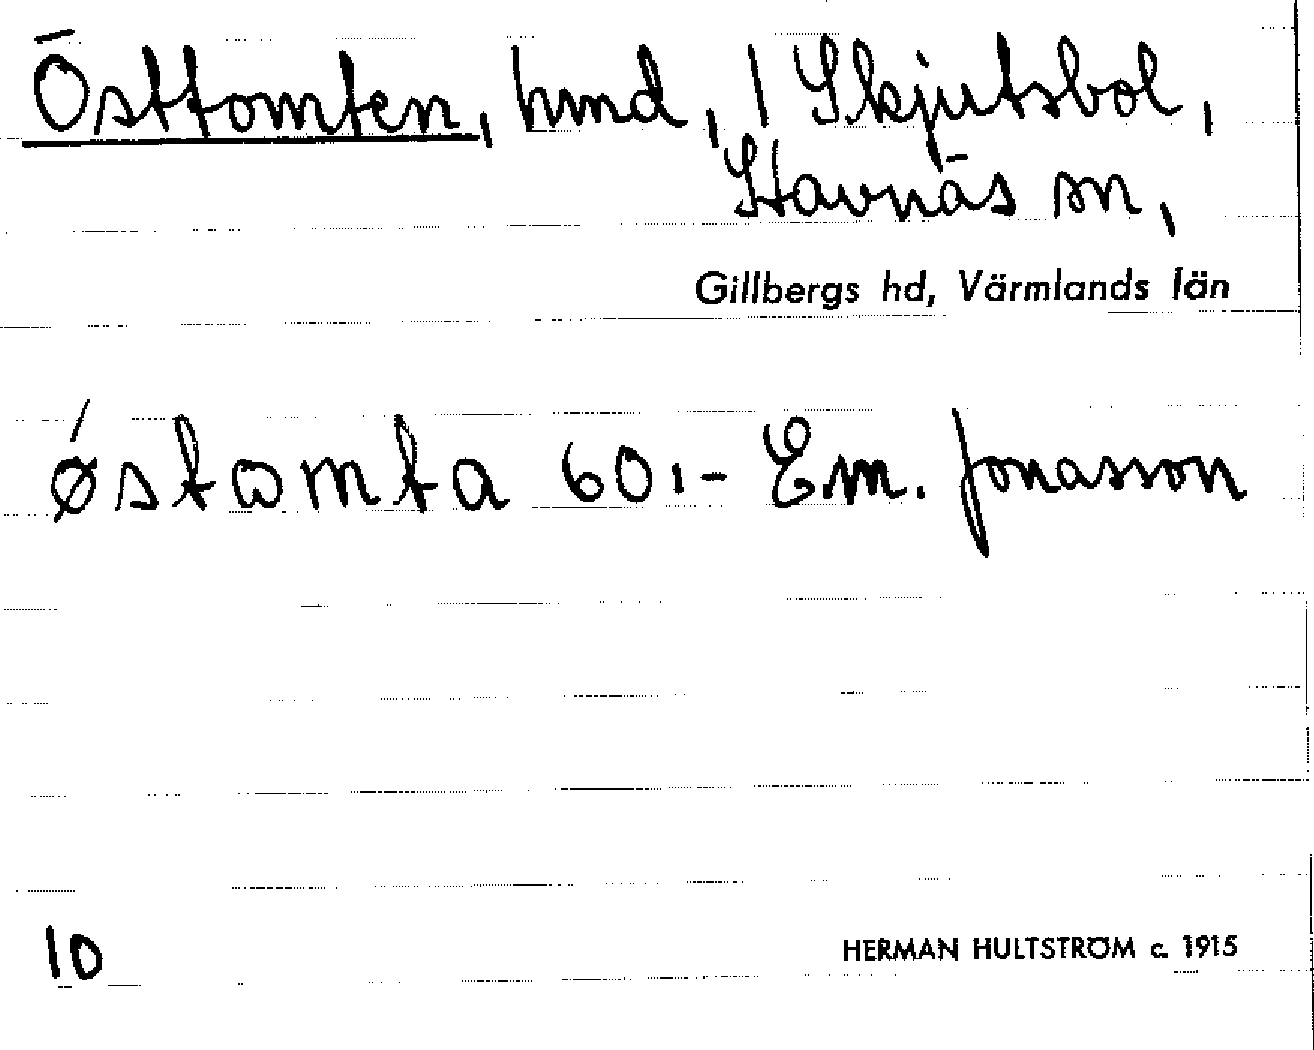 Östtomten, hmd, 1 Skjutsbol,
Stavnäs sn,
Gillbergs hd, Värmlands län
ǿstωmta 60:- Em. Jonasson
10
HERMAN HULTSTRÖM c. 1915